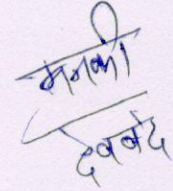 मनकी
देवबंद